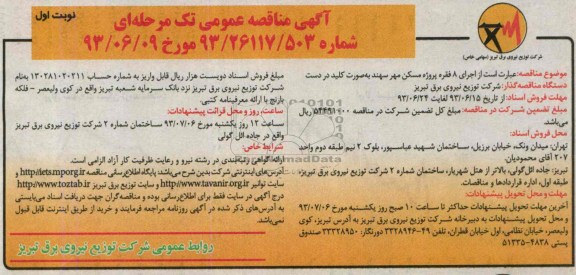 نوبت اول
آگهی مناقصه عمومی تک مرحله‌ای
شماره ۹۳/۲۶۱۱۷/۵۰۳ مورخ ۹۳/۰۶/۰۹
شرکت توزیع نیروی برق تبریز (سهامی خاص)
موضوع مناقصه: عبارت است از اجرای ۸ فقره پروژه مسکن مهر سهند به‌صورت کلید در دست
دستگاه مناقصه‌گذار: شرکت توزیع نیروی برق تبریز
مهلت فروش اسناد: از تاریخ ۹۳/۰۶/۱۵ لغایت ۹۳/۰۶/۲۴
مبلغ تضمین شرکت در مناقصه: مبلغ کل تضمین شرکت در مناقصه ۵۴۴۹۱۱۰۰۰ ریال
می‌باشد.
محل فروش اسناد:
تهران: میدان ونک، خیابان برزیل، ساختمان شهید عباسپور، بلوک ۲ نیم طبقه دوم واحد
۲۰۷ آقای محمودیان
تبریز: جاده ائل‌گولی، بالاتر از هتل شهریار، ساختمان شماره ۲ شرکت توزیع نیروی برق تبریز،
طبقه اول، اداره قراردادها و مناقصات.
مهلت و محل تحویل پیشنهادات:
آخرین مهلت تحویل پیشنهادات حداکثر تا ساعت ۱۰ صبح روز یکشنبه مورخ ۹۳/۰۷/۰۶
و محل تحویل پیشنهادات به دبیرخانه شرکت توزیع نیروی برق تبریز به آدرس: تبریز، کوی
ولیعصر، خیابان نظامی، اول خیابان قطران، تلفن ۴۹-۳۳۲۸۹۴۶ دورنگار: ۳۳۳۲۸۹۵۰ صندوق
پستی ۴۸۳۸-۵۱۳۳۵
مبلغ فروش اسناد دویست هزار ریال قابل واریز به شماره حساب ۱۳۰۲۸۱۰۲۰۲۱۱ به‌نام
شرکت توزیع نیروی برق تبریز نزد بانک سرمایه شعبه تبریز واقع در کوی ولیعصر - فلکه
بارنج با ارائه معرفینامه کتبی.
ساعت، روز و محل قرائت پیشنهادات:
ساعت ۱۲ روز یکشنبه مورخ ۹۳/۰۷/۰۶ ساختمان شماره ۲ شرکت توزیع نیروی برق تبریز
واقع در جاده ائل گولی
شرایط خاص:
ارائه گواهی رتبه‌بندی در رشته نیرو و رعایت ظرفیت کار آزاد الزامی است.
آدرس‌های اینترنتی شرکت بدین شرح می‌باشد: پایگاه اطلاع‌رسانی مناقصه http://iets.mporg.ir و
سایت توانیر http://www.tavanir.org.ir و سایت توزیع برق تبریز http://www.toztab.ir
درج آگهی در سایت فقط برای اطلاع‌رسانی بوده و مناقصه‌گران جهت دریافت اسناد می‌بایستی
به آدرس‌های ذکر شده در آگهی روزنامه مراجعه فرمایند و خرید از طریق اینترنت قابل قبول
نمی‌باشد.
روابط عمومی شرکت توزیع نیروی برق تبریز